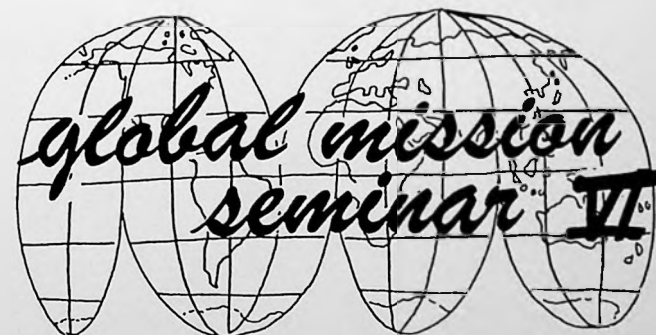 global mission
seminar VI